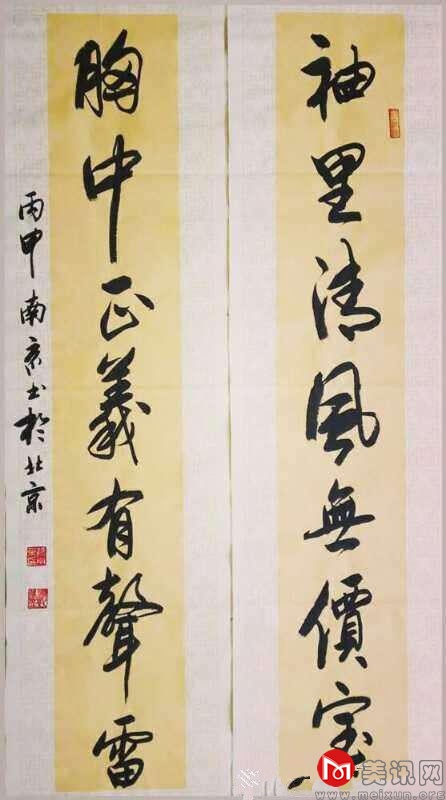 袖里清風無價宝
胸中正義有聲雷
丙申 南京书於北京
美讯网
www.meixun.org